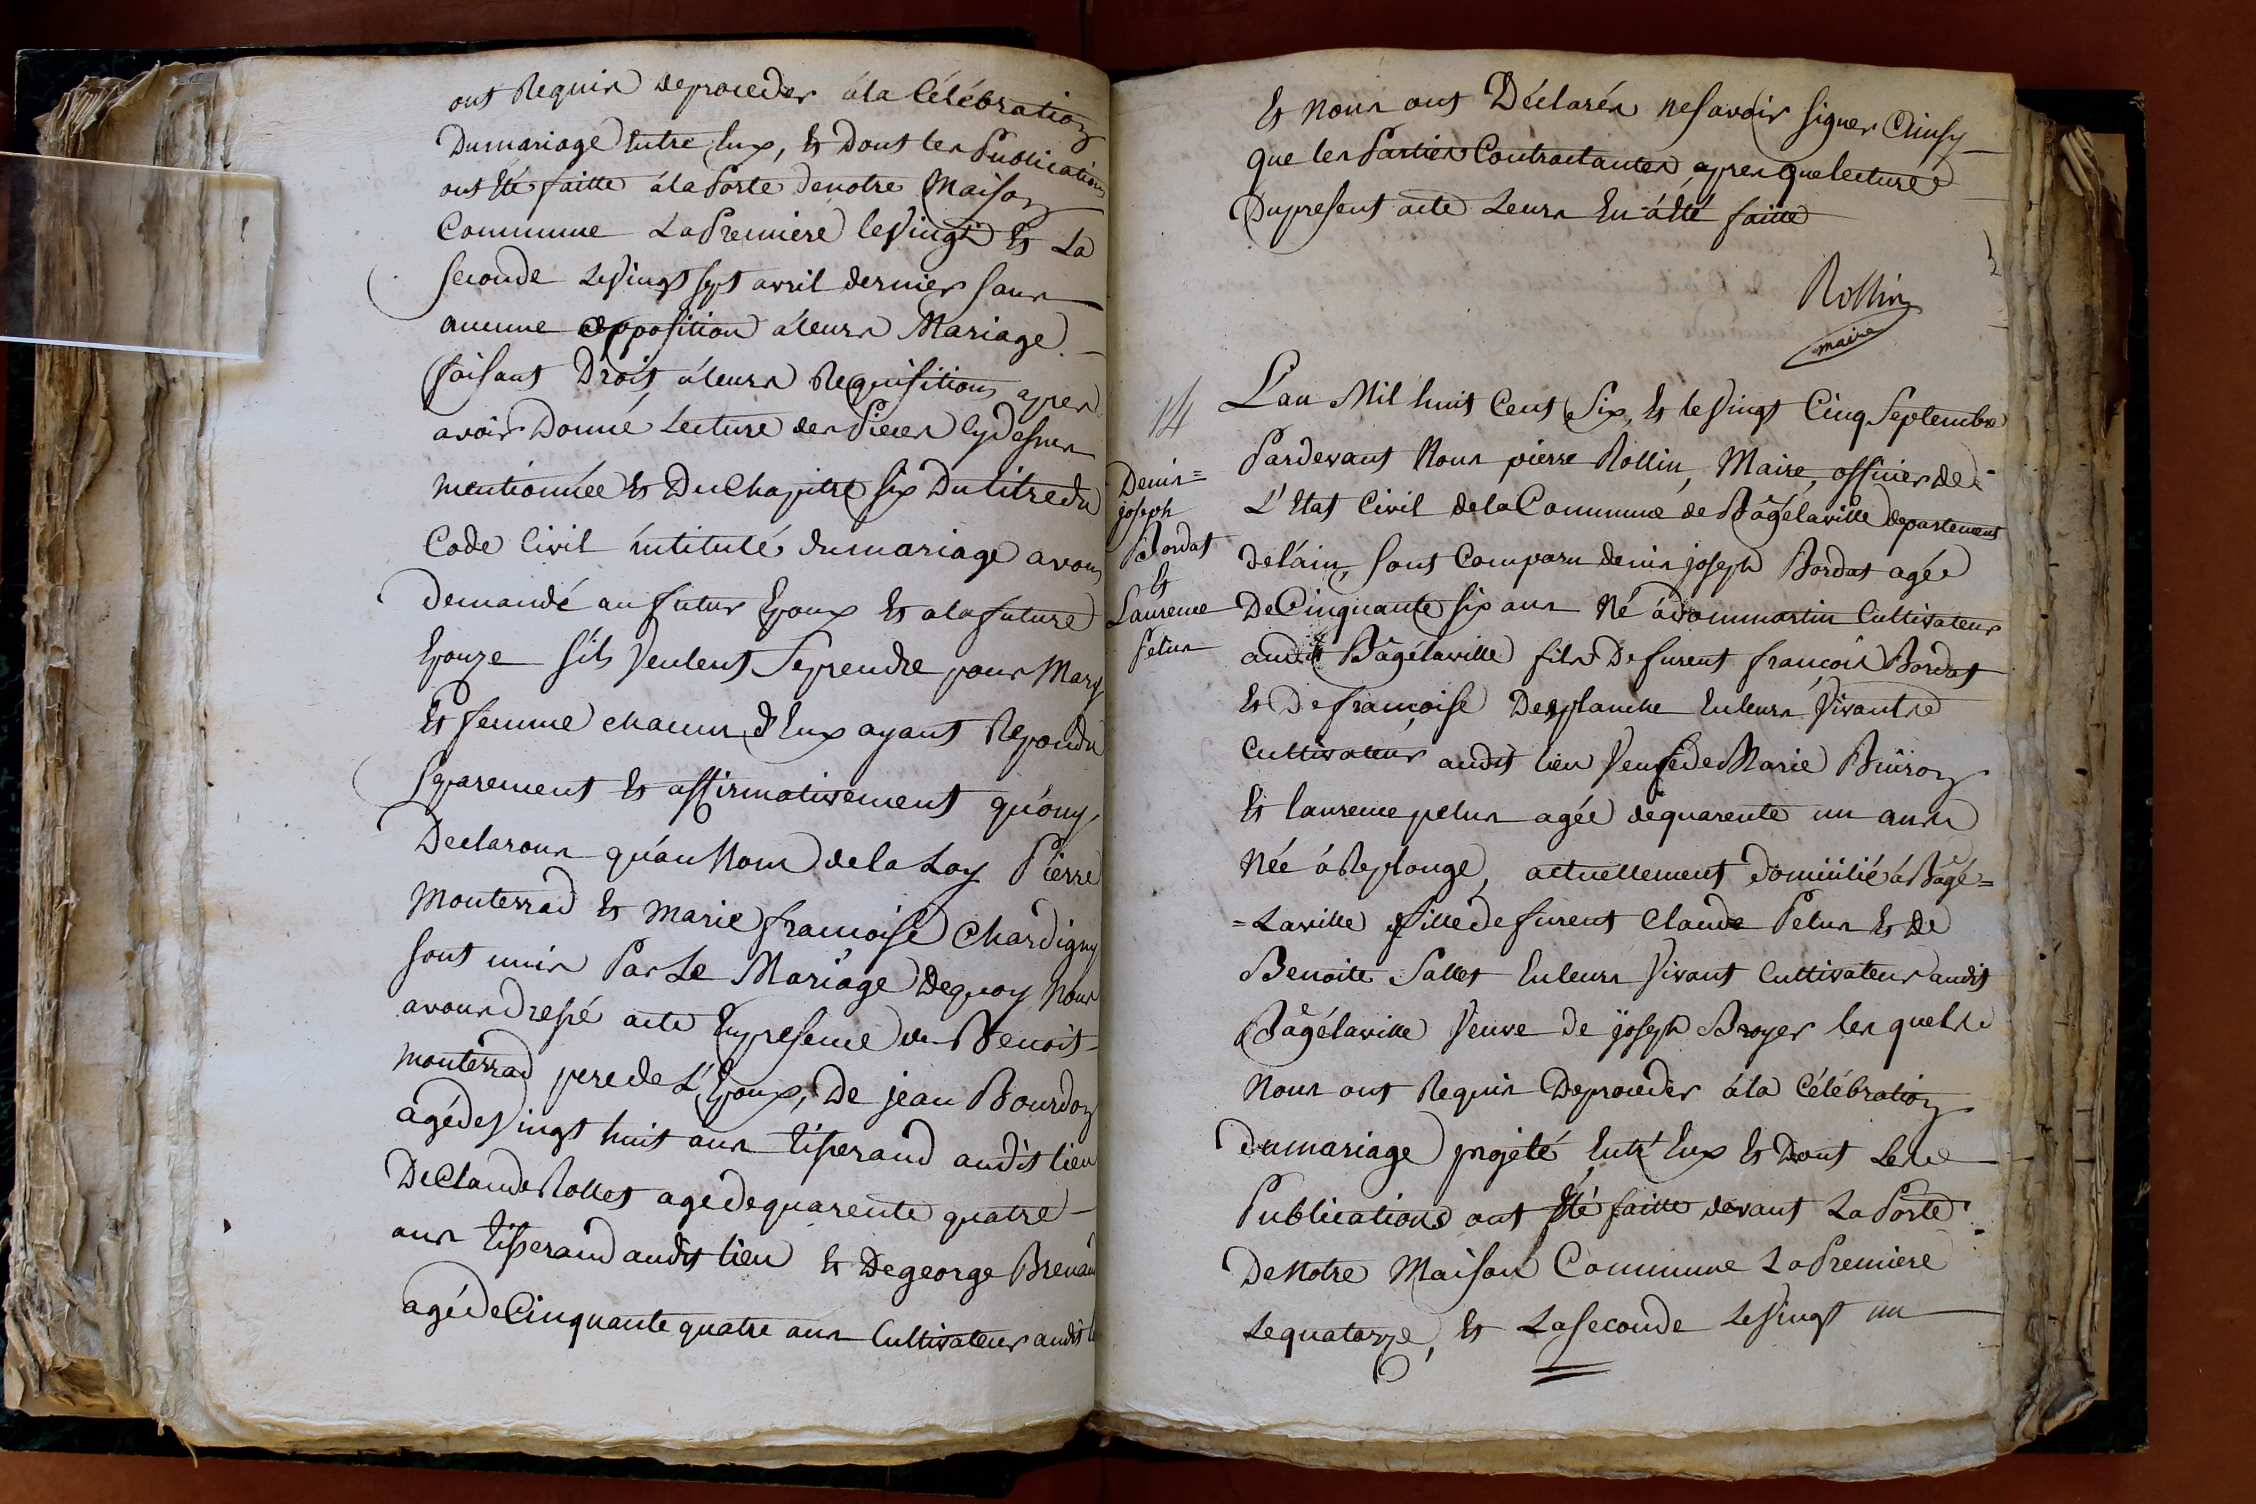 ont Requis deproceder àla Célébration
Dumariage Entre Eux, Et Dont les Publications
ont Eté faitte àla Porte denotre Maison
Commune La Premiere le Vingt Et La
seconde LeVingt sept avril dernier sans
aucune opposition àleurs Mariage
faisant Droit àleurs Requisitions apres
avoir Donné Lecture des Pieces Cydessus
mentionnée Et Du Chapitre six Du titre du
Code Civil intitulé dumariage avons
Demandé au futur Epoux Et a la future
Epouze s'ils Veulent Seprendre pour Mary
Et femme chacun d'Eux ayant Repondu
separement Et affirmativement qu'ouy,
Declarons qu'au Nom de la Loy Pierre
Monterrad Et Marie francoise Chardigny
sont unis Par Le Mariage Dequoy Nous
avons Dressé acte Enpresence de Benoit=
Monterrad pere de L'Epoux, De jean Bourdon
agé de Vingt huit ans tisserand audit lieu
De Claude Rollet agé dequarente quatre
ans tisserand audit lieu Et De george Brenau
agé de Cinquante quatre ans Cultivateur audit
Et Nous ont Déclarés ne savoir signer Ainsy
que les Parties Contractantes apres que lecture
Du present acte Leurs En à Eté faitte
Rollin
maire
14
Denis=
joseph
Bordat
Et
Laurence
Pelus
L'an Mil huit Cent Six, Et le Vingt Cinq Septembre
Pardevant Nous pierre Rollin, Maire, officier de
L'Etat Civil de la Commune de Bâgélaville departement
de l'ain, sont Comparu denis joseph Bordat agée
De Cinquante six ans Né àdommartin Cultivateur
audit Bâgélaville fils De furent françois Bordat
Et De françoise Desplanche Enleurs Vivant
Cultivateur audit lieu Veuf de Marie Buiron
Et laurence pelus agée de quarente un ans
Née à Replonge, actuellement domicilié à Bâgé=
=Laville fille de furent Claude Pelus Et De
Benoite Sallet Enleurs Vivant Cultivateur audit
Bâgélaville Veuve de joseph Broyer les quels
Nous ont Requis Deproceder àla Célébration
dumariage projeté Entr'Eux Et Dont Les
Publications ont Eté faitte devant La Porte
De Notre Maison Commune La Premiere
Le quatorze, Et La seconde Le Vingt un